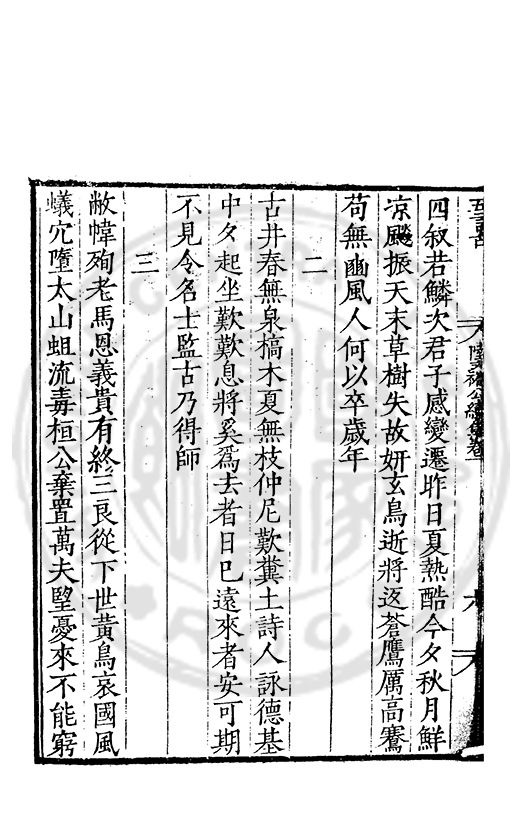 五言古
陸文裕公續集卷一
六
四叙若鱗次君子感變遷昨日夏熱酷今夕秋月鮮
凉飈振天末草樹失故妍玄鳥逝將返蒼鷹厲高騫
苟無豳風人何以卒歲年
二
古井春無泉槁木夏無枝仲尼歎糞土詩人詠德基
中夕起坐歎歎息將奚爲去者日已遠來者安可期
不見令名士監古乃得師
三
敝帷殉老馬恩義貴有終三良從下世黄鳥哀國風
蟻穴墮太山蛆流毒桓公棄置萬夫朢憂來不能窮